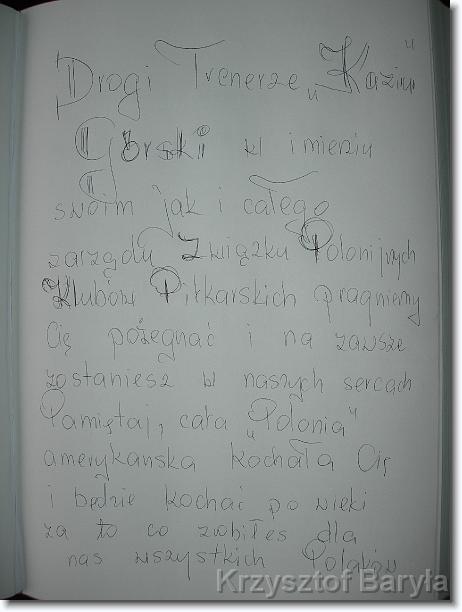 Drogi Trenerze „Kaziu"
Górski w imieniu
swoim jak i całego
zarządu Związku Polonijnych
Klubów Piłkarskich pragniemy
Cię pożegnać i na zawsze
zostaniesz w naszych sercach
Pamiętaj, cała „Polonia"
amerykanska kochała Cię
i będzie kochać po wieki
za to co zrobiłes dla
nas wszystkich Polaków
Krzysztof Baryła